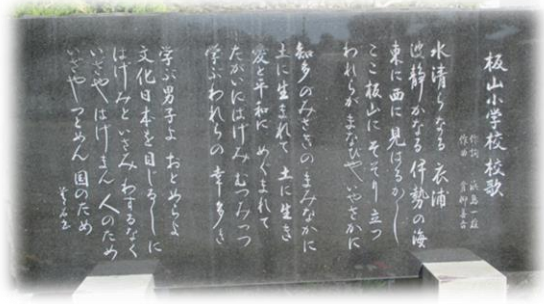 板山小学校 校歌
作詞
作曲
水清らなる 衣浦
波静かなる 伊勢の海
東に西に見はるかし
ここ板山に そそり立つ
われらがまなびや いやさかに
知多のみさきの まみなかに
土に生まれて 土に生き
愛と平和に めぐまれて
たがいにはげみ むつみつつ
学ぶわれらの 幸多き
学ぶ男子よ おとめらよ
文化日本を 目じるしに
はげみといさみ わするなく
いざや はげまん 人のため
いざや つとめん 国のため